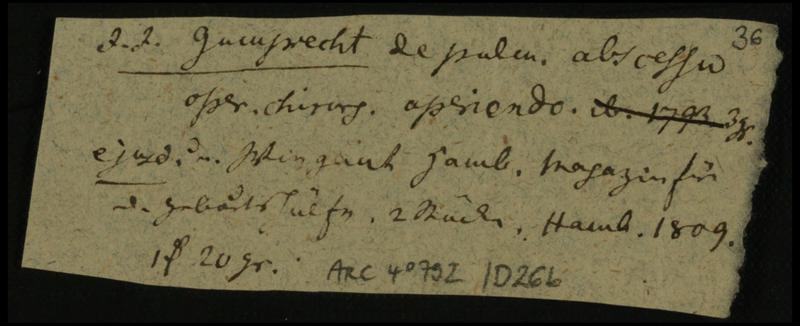 36
J. J. Gumprecht de pulm. abscessu
oper. chirurg. aperiendo. ib. 1793 3 gr.
ejusd. u. Wingaut Hamb. Magazin für
d. Geburtshülfe, 2 Stücke, Hamb. 1809.
1 20 gr.
ARC 4° 792 /D26b